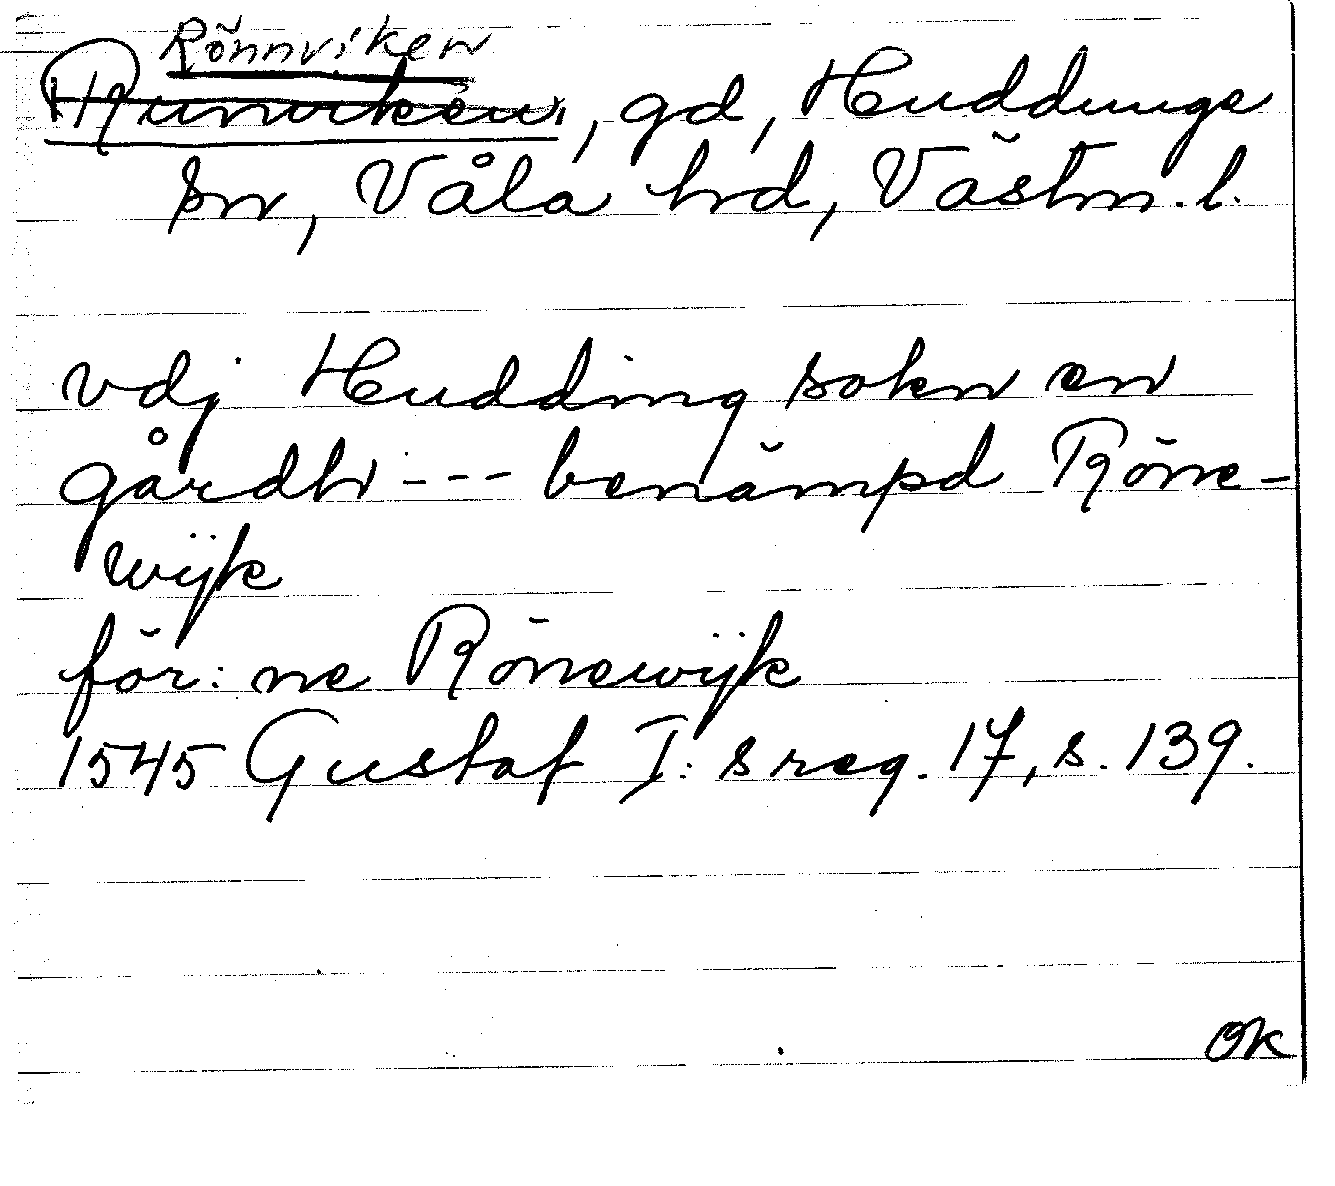 Rönnviken
Runviken, gd, Huddunge
sn, Våla hd, Västm. l.
vdj Hudding sokn en
gårdh --- benämpd Röne-
wijk
för: ne Rönewijk
1545 Gustaf I: s reg. 17, s. 139.
OK